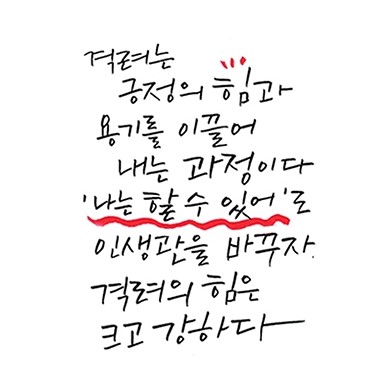 격려는
긍정의 힘과
용기를 이끌어
내는 과정이다
'나는 할 수 있어'로
인생관을 바꾸자.
격려의 힘은
크고 강하다